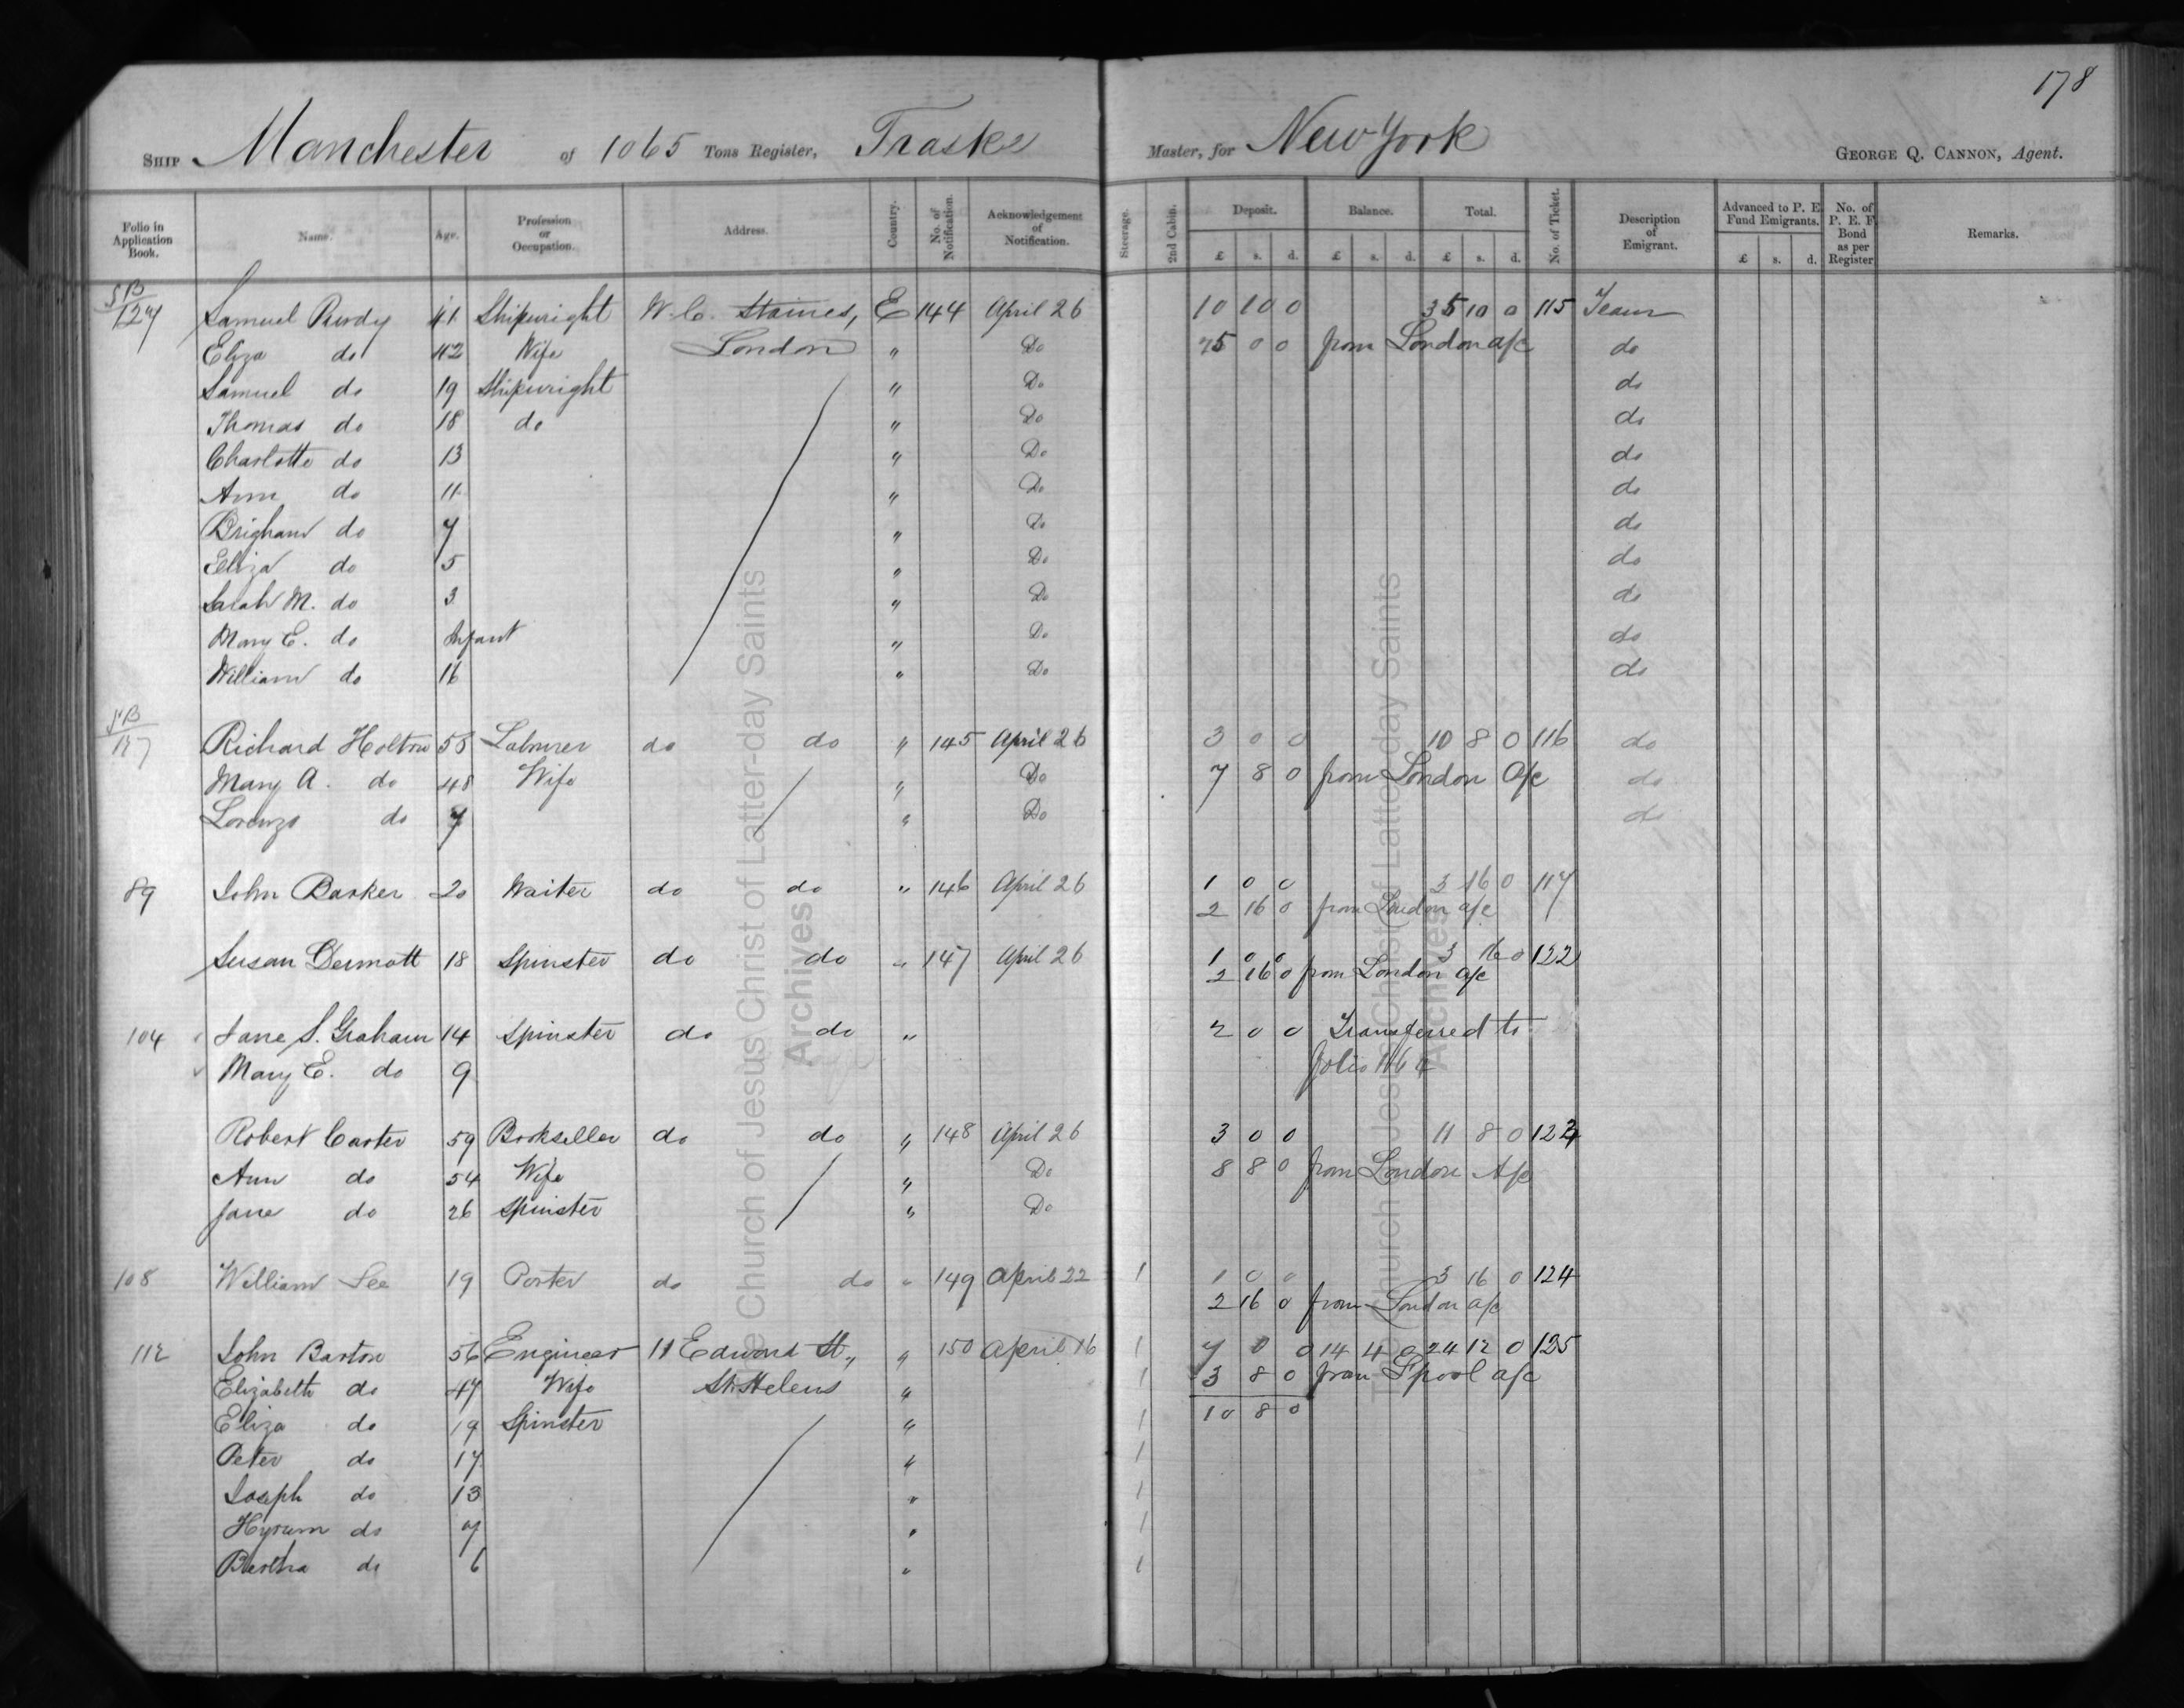 178
Ship Manchester of 1065 Tons Register, Traske Master, for New York George Q. Cannon, Agent.
Folio in Application Book. Name. Age. Profession or Occupation. Address. Country. No. of Notification. Acknowledgement of Notification. Steerage. 2nd Cabin. Deposit. £ s. d. Balance. £ s. d. Total. £ s. d. No. of Ticket. Description of Emigrant. Advanced to P. E. Fund Emigrants. £ s. d. No. of P. E. F. Bond as per Register Remarks.
SB
127 Samuel Purdy 41 Shipwright W. C. Staines, E 144 April 26 10 10 0 35 10 0 115 Team
Eliza do 42 Wife London " Do 25 0 0 from London a/c do
Samuel do 19 Shipwright " Do do
Thomas do 18 do " Do do
Charlotte do 13 " Do do
Ann do 11 " Do do
Brigham do 7 " Do do
Eliza do 5 " Do do
Sarah M. do 3 " Do do
Mary E. do Infant " Do do
William do 16 " Do do
SB
127 Richard Holton 58 Labourer do do " 145 April 26 3 0 0 10 8 0 116 do
Mary A. do 48 Wife " Do 7 8 0 from London a/c do
Lorenzo do 7 " Do do
89 John Barker 20 Waiter do do " 146 April 26 1 0 0 3 16 0 117
2 16 0 from London a/c
Susan Dermott 18 Spinster do do " 147 April 26 1 0 0 3 16 0 122
2 16 0 from London a/c
104 Jane S. Graham 14 Spinster do do " 2 0 0 Transferred to
Mary E. do 9 folio 164
Robert Carter 59 Bookseller do do " 148 April 26 3 0 0 11 8 0 123
Ann do 54 Wife " Do 8 8 0 from London A/c
Jane do 26 Spinster " Do
108 William Lee 19 Porter do do " 149 April 22 1 1 0 0 3 16 0 124
2 16 0 from London a/c
112 John Barton 56 Engineer 11 Edward St., " 150 April 16 1 7 0 0 14 4 0 24 12 0 125
Elizabeth do 47 Wife St. Helens " 1 3 8 0 from L'pool a/c
Eliza do 19 Spinster " 1 10 8 0
Peter do 17 " 1
Joseph do 13 " 1
Hyrum do 7 " 1
Bertha do 6 " 1
The Church of Jesus Christ of Latter-day Saints
Archives
The Church of Jesus Christ of Latter-day Saints
Archives